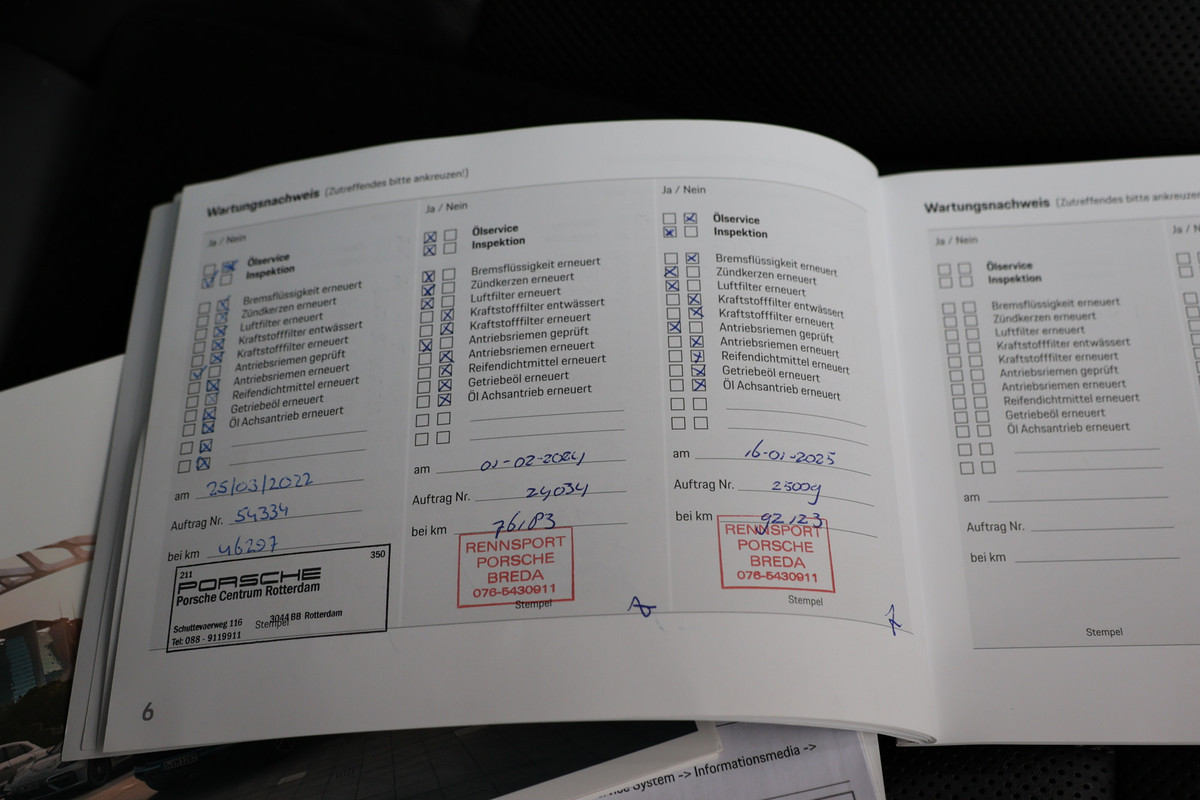 Wartungsnachweis (Zutreffendes bitte ankreuzen!)
Ja / Nein
Ölservice
Inspektion
Bremsflüssigkeit erneuert
Zündkerzen erneuert
Luftfilter erneuert
Kraftstofffilter entwässert
Kraftstofffilter erneuert
Antriebsriemen geprüft
Antriebsriemen erneuert
Reifendichtmittel erneuert
Getriebeöl erneuert
Öl Achsantrieb erneuert
am 25/03/2022
Auftrag Nr. 54334
bei km 46297
211 350
PORSCHE
Porsche Centrum Rotterdam
Schuttevaerweg 116 3044 BB Rotterdam
Stempel
Tel: 088 - 9119911
Ja / Nein
Ölservice
Inspektion
Bremsflüssigkeit erneuert
Zündkerzen erneuert
Luftfilter erneuert
Kraftstofffilter entwässert
Kraftstofffilter erneuert
Antriebsriemen geprüft
Antriebsriemen erneuert
Reifendichtmittel erneuert
Getriebeöl erneuert
Öl Achsantrieb erneuert
am 01-02-2024
Auftrag Nr. 24034
bei km
RENNSPORT
PORSCHE
BREDA
076-5430911
Stempel
Ja / Nein
Ölservice
Inspektion
Bremsflüssigkeit erneuert
Zündkerzen erneuert
Luftfilter erneuert
Kraftstofffilter entwässert
Kraftstofffilter erneuert
Antriebsriemen geprüft
Antriebsriemen erneuert
Reifendichtmittel erneuert
Getriebeöl erneuert
Öl Achsantrieb erneuert
am 16-01-2025
Auftrag Nr. 25009
bei km 92.123
RENNSPORT
PORSCHE
BREDA
076-5430911
Stempel
6
Wartungsnachweis (Zutreffendes bitte ankreuzen
Ja / Nein
Ölservice
Inspektion
Bremsflüssigkeit erneuert
Zündkerzen erneuert
Luftfilter erneuert
Kraftstofffilter entwässert
Kraftstofffilter erneuert
Antriebsriemen geprüft
Antriebsriemen erneuert
Reifendichtmittel erneuert
Getriebeöl erneuert
Öl Achsantrieb erneuert
am
Auftrag Nr.
bei km
Stempel
Ja / N
System -> Informationsmedia ->